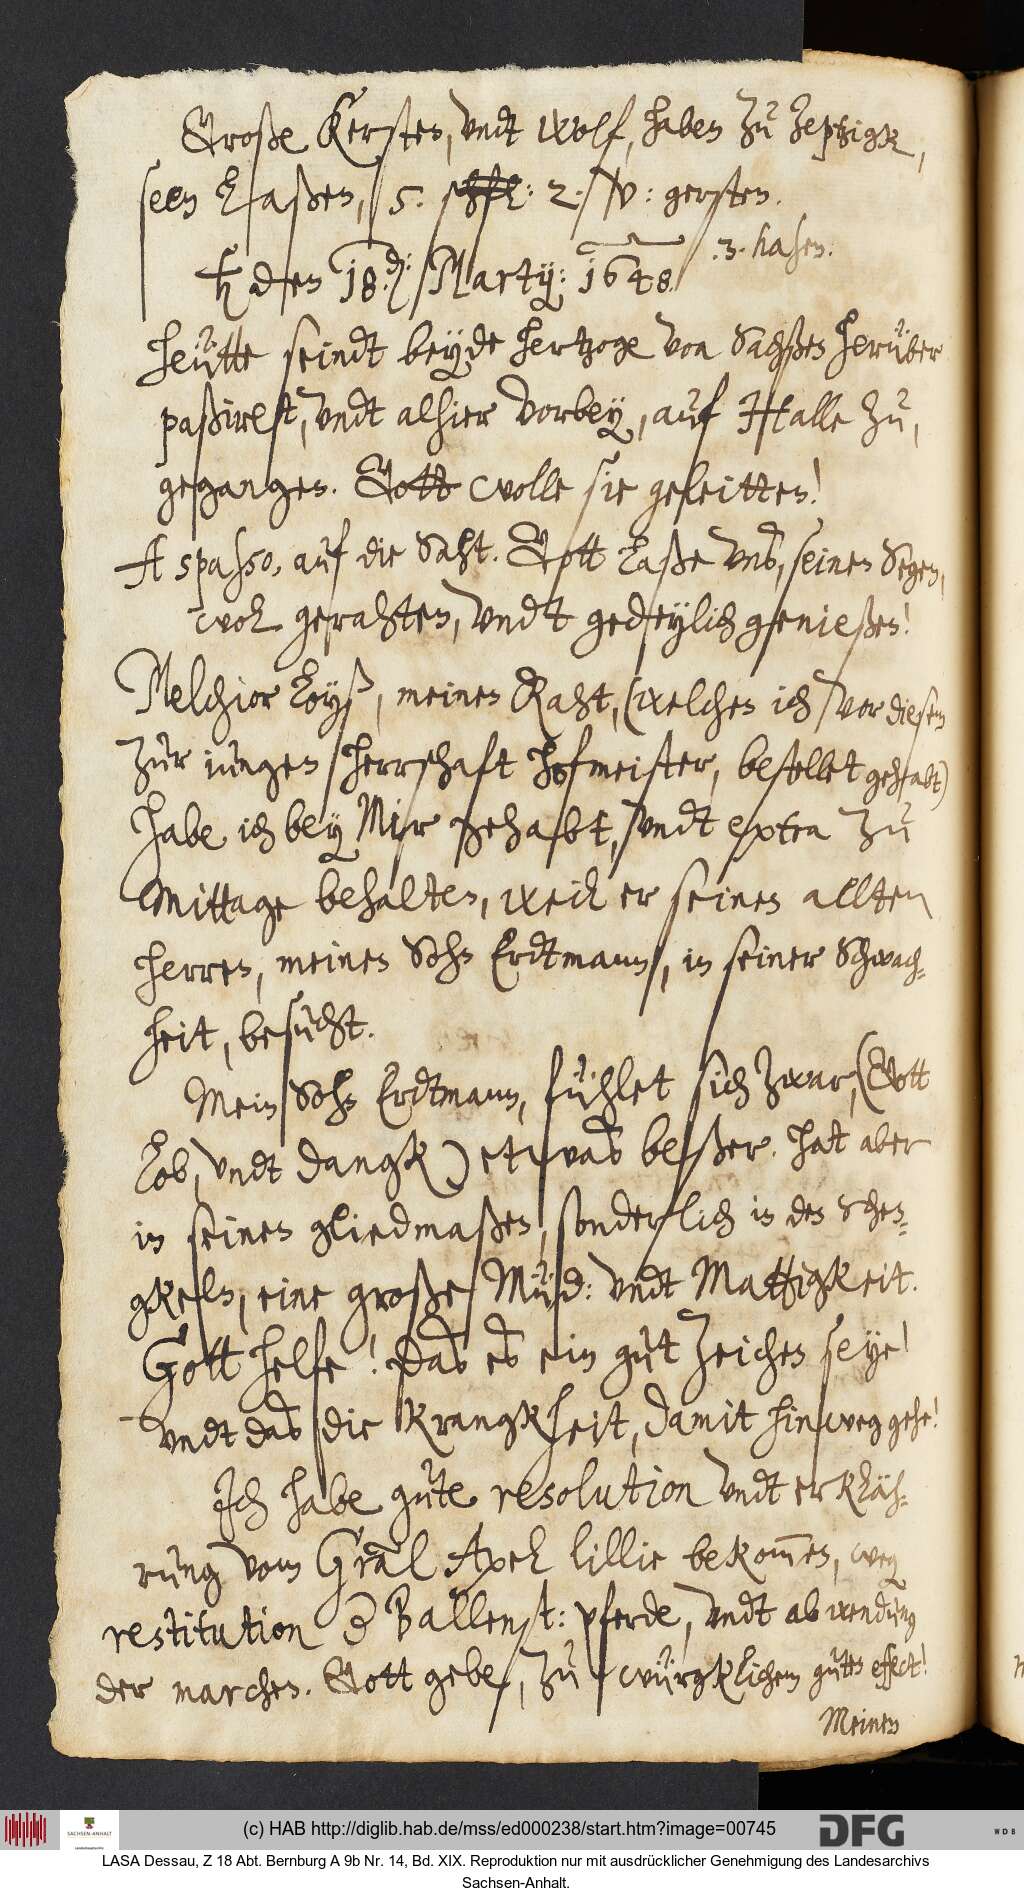 Große Kersten, vndt Wolf, haben zu Zeptzigk,
seen laßen, 5. schfl: 2. W: gersten.
.3. hasen.
♄ den 18.d: Martij: 1648.
Heütte seindt beyde Hertzoge von Sachßen herüber
paßirt, vndt alhier vorbey, auf Halle zu,
gegangen. Gott wolle sie geleitten!
A spasso, auf die Saht. Gott laße vnß, seinen Segen,
wol gerahten, vndt gedeylich genießen!
Melchior Loyß, meinen Raht, (welchen ich vor diesem
zur iungen herrschaft hofmeister, bestellet gehabt)
habe ich bey Mir gehabt, vndt extra zu
Mittage behalten, weil er seinen allten
herren, meinen Sohn Erdtmann, in seiner Schwach-
heit, besucht.
Mein Sohn Erdtmann, fühlet sich zwar, (Gott
lob, vndt dangk) etwaß beßer. hat aber
in seinen gliedmaßen, sonderlich in den Schen-
gkeln, eine große Müd: vndt Mattigkeit.
Gott helfe! daß es ein gut zeichen seye!
vndt daß die Krangkheit, damit hinweg gehe!
Ich habe gute resolution vndt erkläh-
rung vom Gral Axel Lillie bekommen, weg
restitution d Ballenst: pferde, vndt abwendung
der marchen. Gott gebe, zu würgklichem guten effect!
Meinen
(c) HAB http://diglib.hab.de/mss/ed000238/start.htm?image=00745
DFG
WDB
SACHSEN-ANHALT
LASA Dessau, Z 18 Abt. Bernburg A 9b Nr. 14, Bd. XIX. Reproduktion nur mit ausdrücklicher Genehmigung des Landesarchivs
Sachsen-Anhalt.